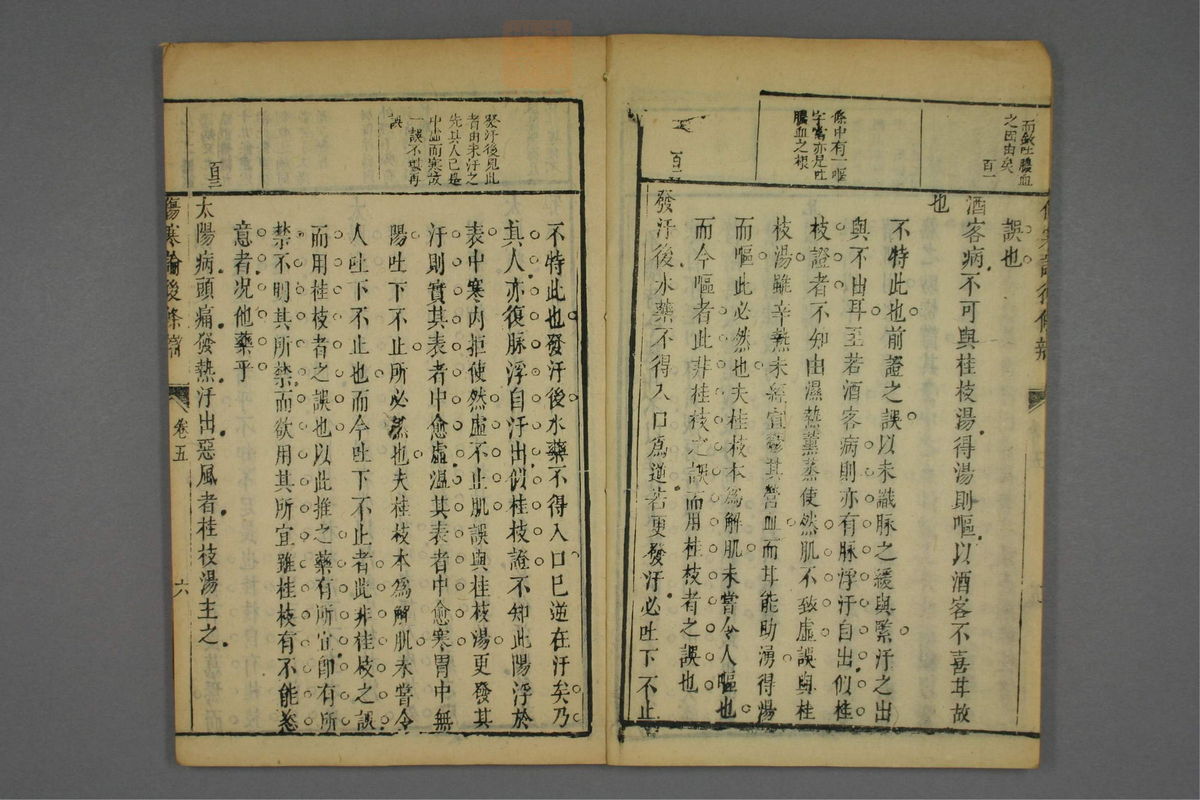 而致吐膿血
之因由矣
百一
條中有一嘔
字當亦是吐
膿血之根
百二
誤也
酒客病不可與桂枝湯得湯則嘔以酒客不喜甘故
也
不特此也前證之誤以未識脈之緩與緊汗之出
與不出耳至若酒客病則亦有脈浮汗自出似桂
枝證者不知由濕熱薰蒸使然肌不致虛誤與桂
枝湯雖辛熱未經宣鬱其營血而甘能助湧得湯
而嘔此必然也夫桂枝本爲解肌未嘗令人嘔也
而今嘔者此非桂枝之誤而用桂枝者之誤也
發汗後水藥不得入口爲逆若更發汗必吐下不止
發汗後見此
者由未汗之
先其人已是
中虛而寒故
一誤不堪再
誤
百三
不特此也發汗後水藥不得入口已逆在汗矣乃
其人亦復脈浮自汗出似桂枝證不知此陽浮於
表中寒內拒使然虛不止肌誤與桂枝湯更發其
汗則實其表者中愈虛溫其表者中愈寒胃中無
陽吐下不止所必然也夫桂枝本爲解肌未嘗令
人吐下不止也而今吐下不止者此非桂枝之誤
而用桂枝者之誤也以此推之藥有所宜卽有所
禁不明其所禁而欲用其所宜雖桂枝有不能恣
意者况他藥乎
太陽病頭痛發熱汗出惡風者桂枝湯主之
傷寒論後條辨
卷五
六